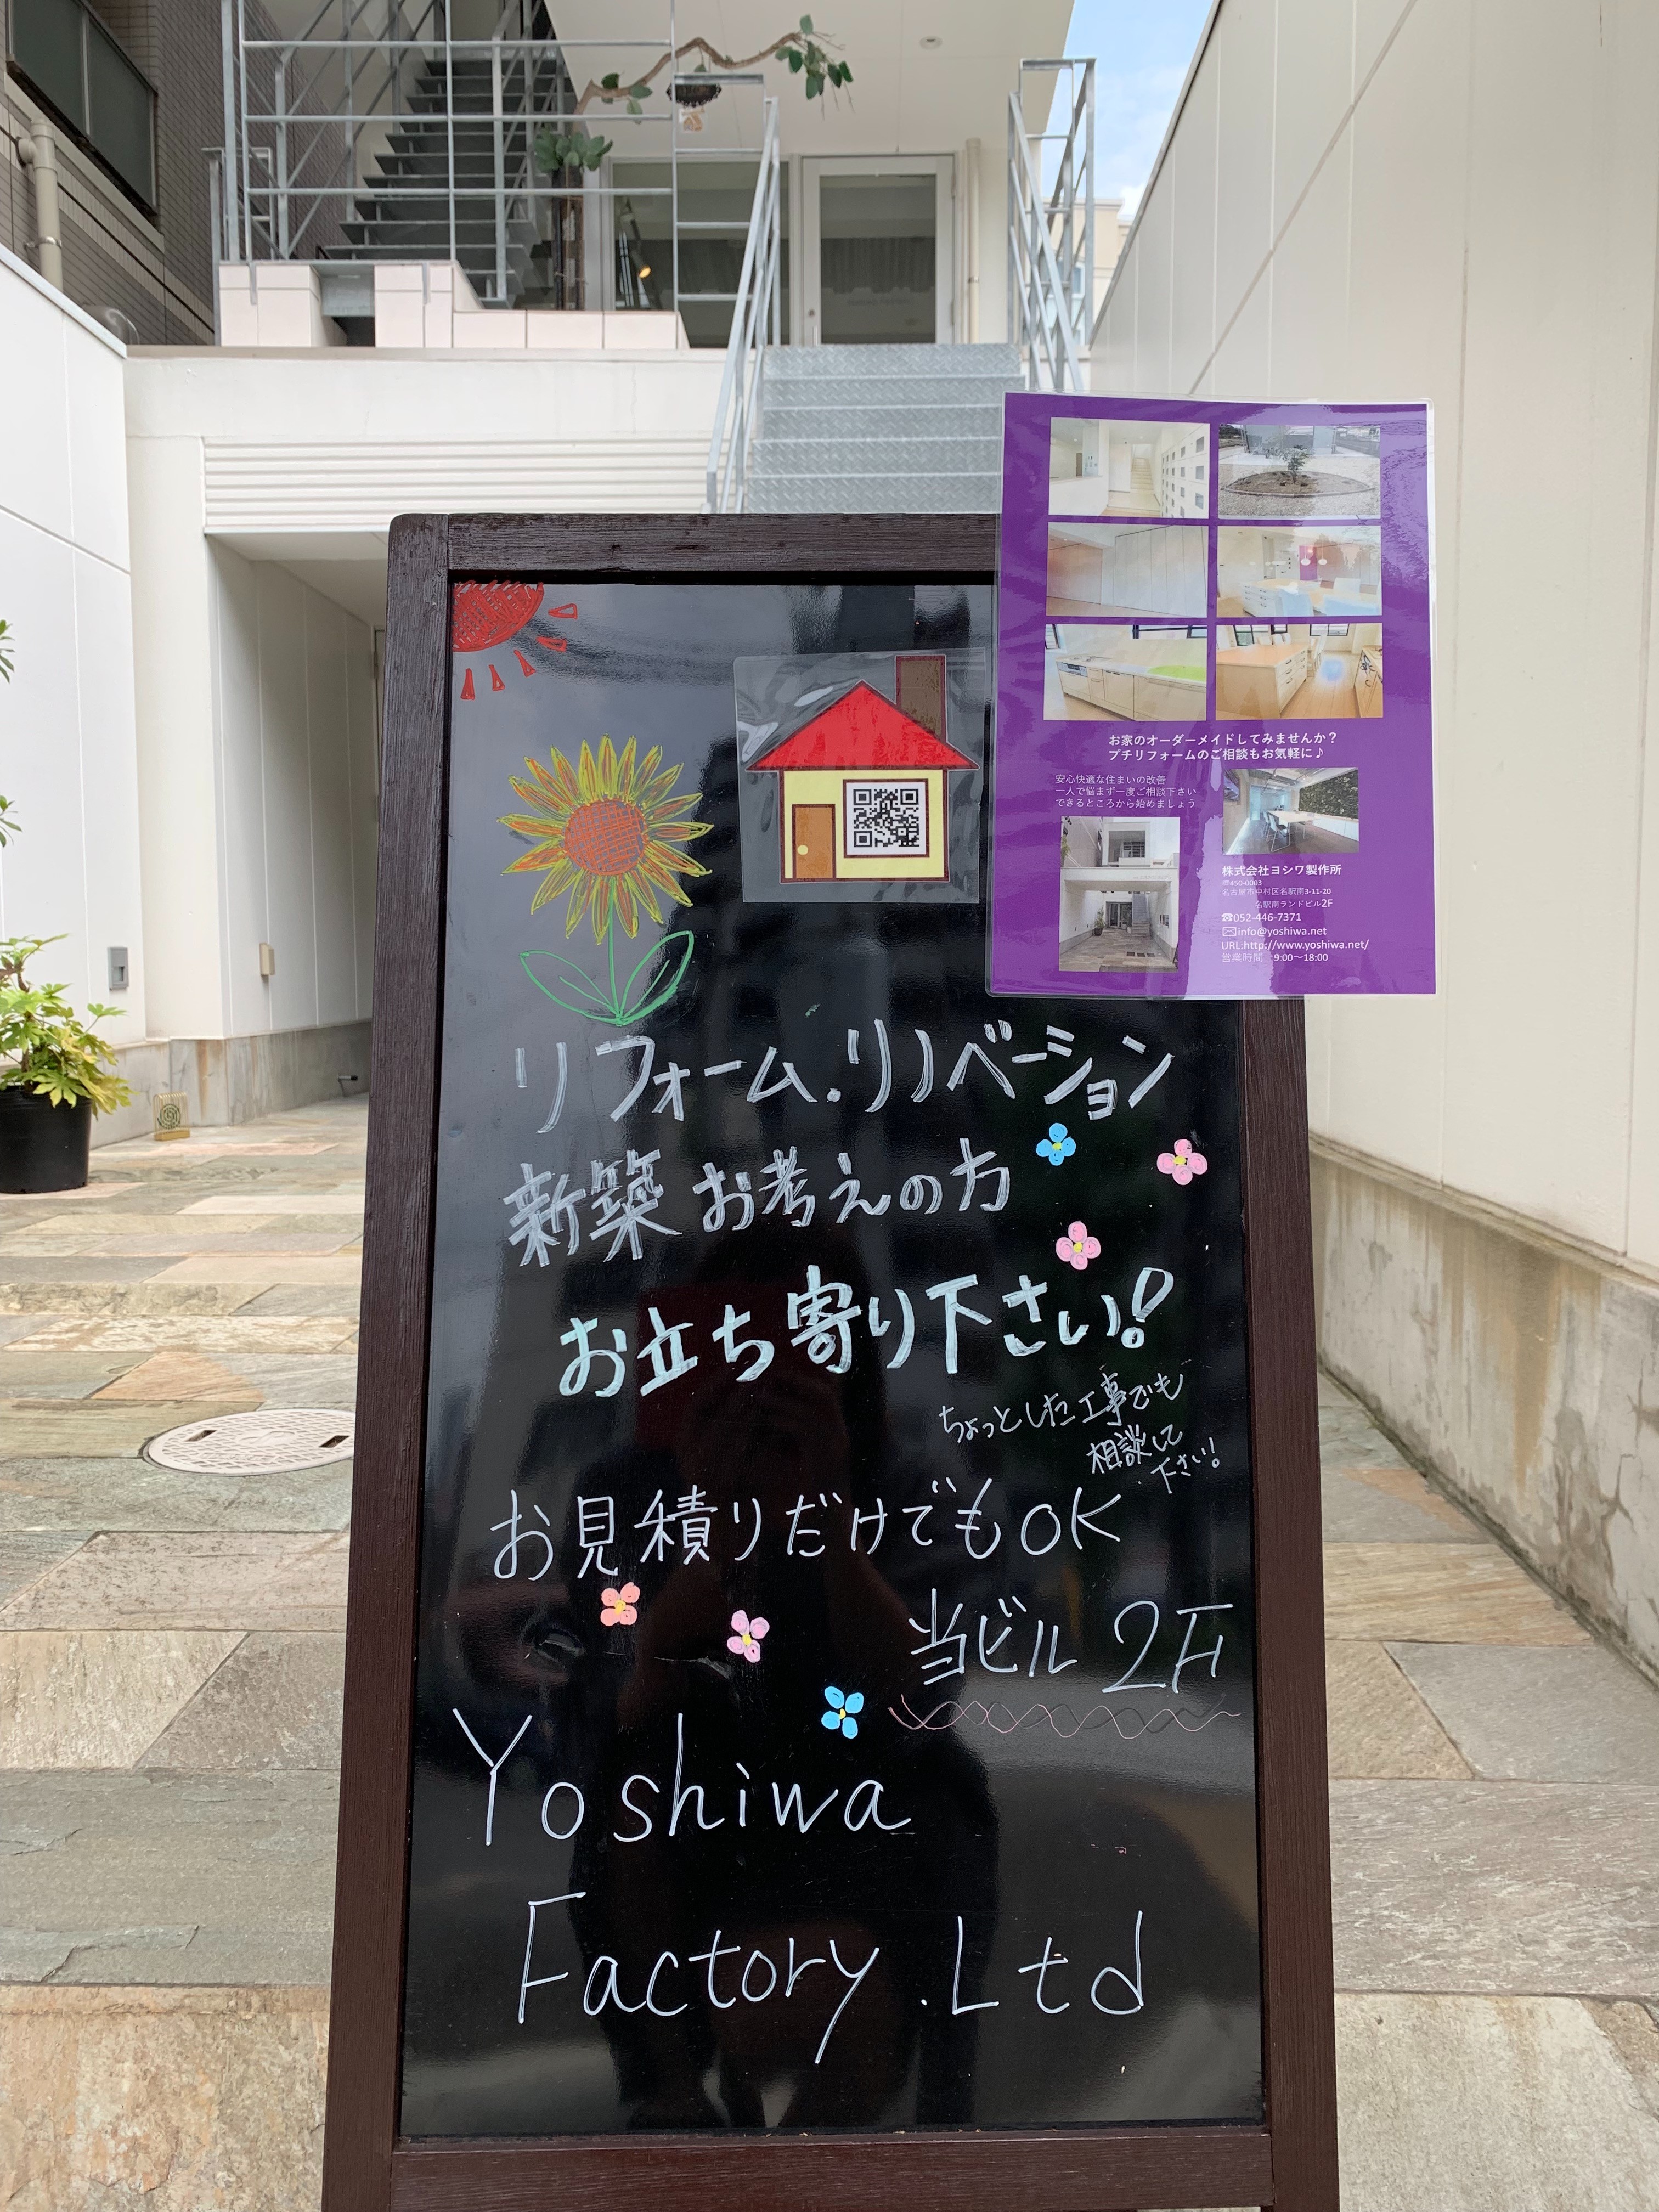 お家のオーダーメイドしてみませんか？
プチリフォームのご相談もお気軽に♪
安心快適な住まいの改善
一人で悩まず一度ご相談下さい
できるところから始めましょう
株式会社ヨシワ製作所
〒450-0003
名古屋市中村区名駅南3-11-20
名駅南ランドビル2F
☎052-446-7371
✉info@yoshiwa.net
URL:http://www.yoshiwa.net/
営業時間 9:00～18:00
リフォーム.リノベーション
新築お考えの方
お立ち寄り下さい!
ちょっとした工事でも
相談して
下さい!
お見積りだけでもOK
当ビル 2F
Yoshiwa
Factory .Ltd